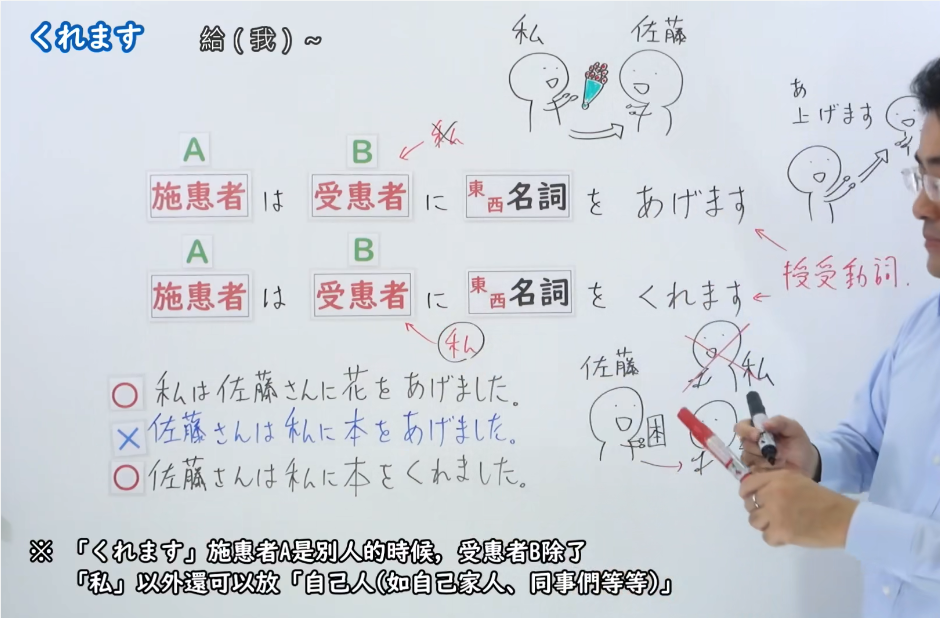 くれます 給(我)~
私 佐藤
あ
上げます
私
A B
施惠者 は 受惠者 に 東西名詞 を あげます
授受動詞.
A B
施惠者 は 受惠者 に 東西名詞 を くれます
私
佐藤 私
本
○ 私は佐藤さんに花をあげました。
× 佐藤さんは私に本をあげました。
○ 佐藤さんは私に本をくれました。
※ 「くれます」施惠者A是別人的時候，受惠者B除了
「私」以外還可以放「自己人(如自己家人、同事們等等)」